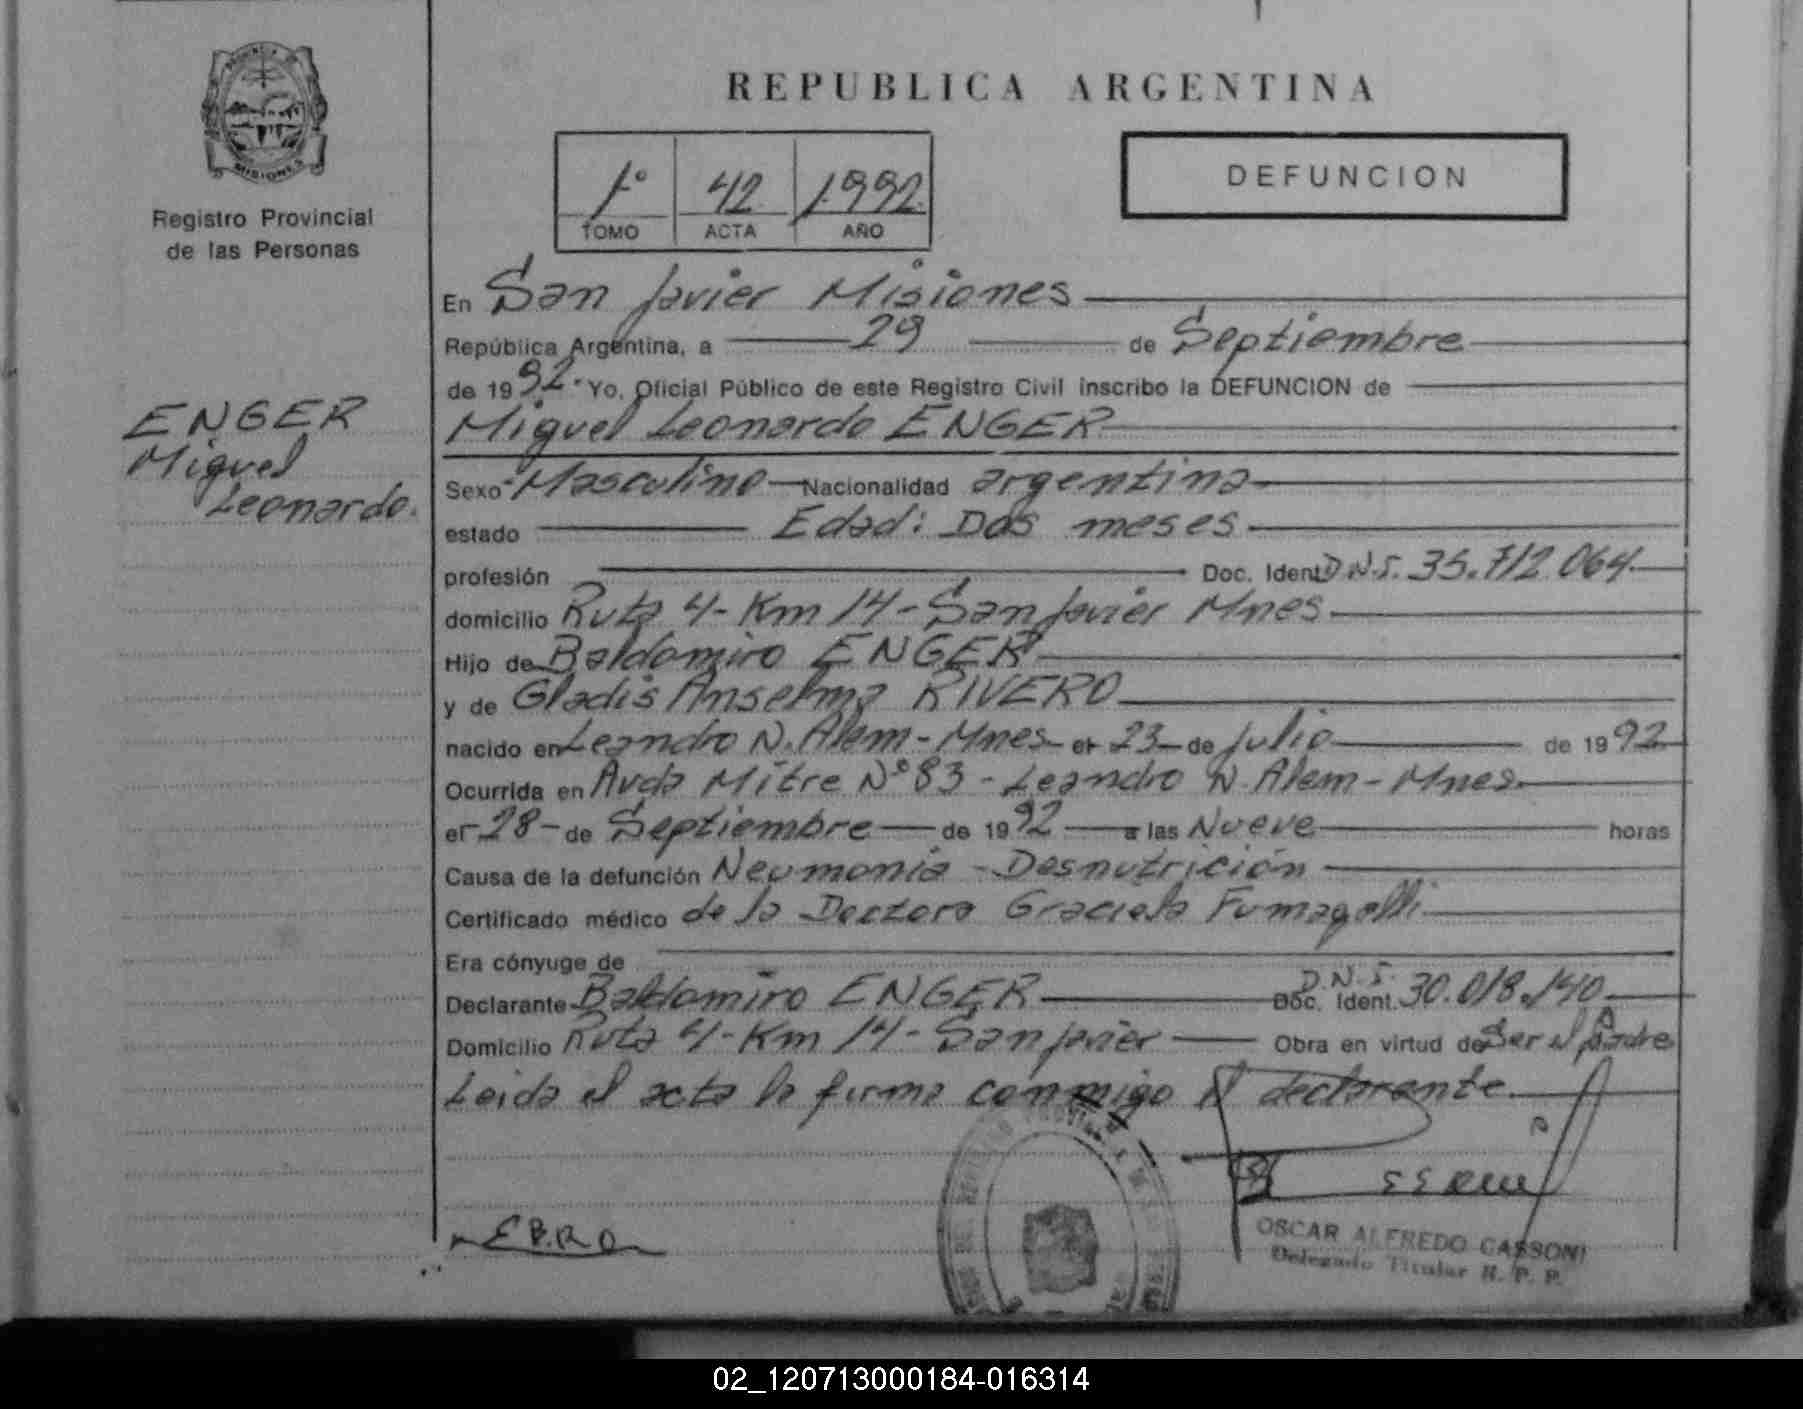 REPUBLICA ARGENTINA
PROVINCIA
MISIONES
Registro Provincial
de las Personas
1º 42 1992
TOMO ACTA AÑO
DEFUNCION
En San Javier Misiones
República Argentina, a 29 de Septiembre
de 1992. Yo, Oficial Público de este Registro Civil inscribo la DEFUNCION de
ENGER
Miguel
Leonardo.
Miguel Leonardo ENGER
Sexo Masculino Nacionalidad argentina
estado Edad: Dos meses
profesión Doc. Ident. D.N.I. 35.712.064
domicilio Ruta 4 - Km 14 - San Javier Mnes
Hijo de Baldomiro ENGER
y de Gladis Anselma RIVERO
nacido en Leandro N. Alem - Mnes el 23 de Julio de 1992
Ocurrida en Avda Mitre Nº 83 - Leandro N. Alem - Mnes
el 28 de Septiembre de 1992 a las Nueve horas
Causa de la defunción Neumonia - Desnutrición
Certificado médico de la Doctora Graciela Fumagalli
Era cónyuge de
Declarante Baldomiro ENGER D.N.I. Doc. Ident. 30.018.140
Domicilio Ruta 4 - Km 14 - San Javier Obra en virtud de Ser el Padre
Leida el acta la firma conmigo el declarante.
OSCAR ALFREDO CASSONI
Delegado Titular R. P. P.
02_120713000184-016314